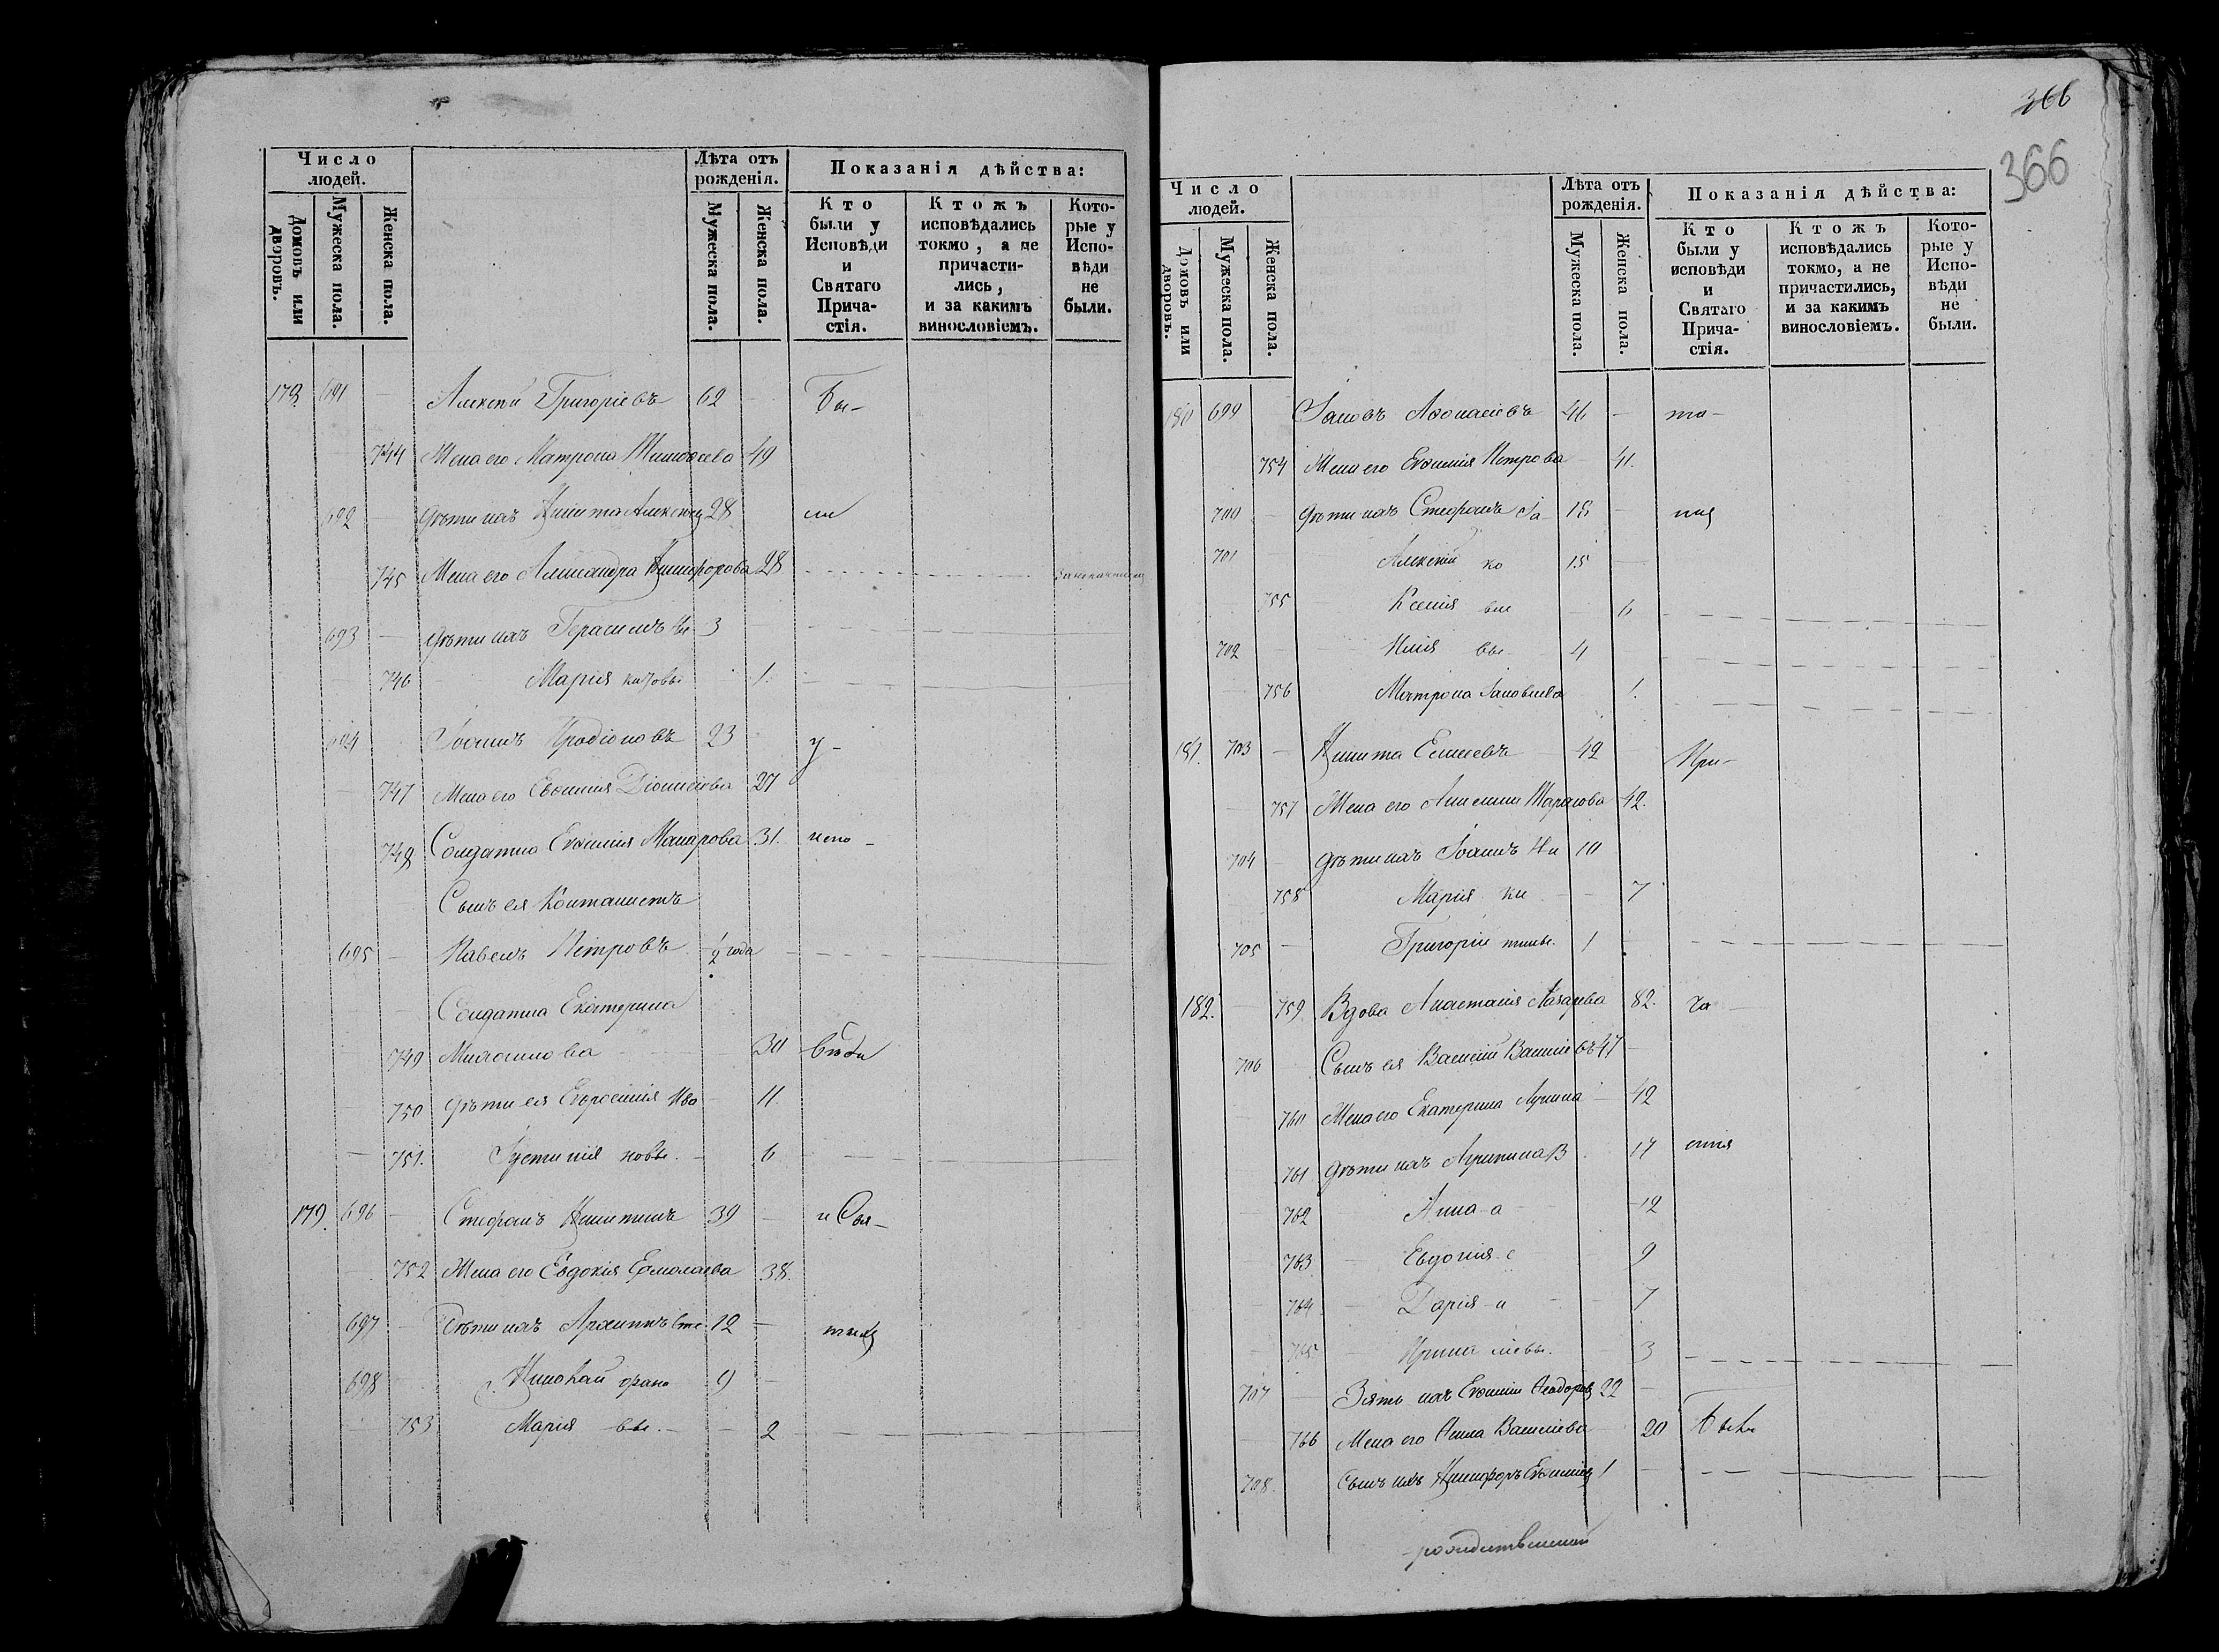 Число людей.
Лѣта отъ рожденія.
Показанія дѣйства:
Домовъ или дворовъ.
Мужеска пола.
Женска пола.
Мужеска пола.
Женска пола.
Кто были у Исповѣди и Святаго Прича-стія.
Ктожъ исповѣдались токмо, а не причасти-лись, и за какимъ винословіемъ.
Кото-рые у Испо-вѣди не были.
178. 691 — Алексѣй Григоріевъ 62 — Бы-
744 Жена его Матрона Тимофеева 49
692 — Дѣти ихъ Никита Алексѣев 28 ли
745 Жена его Александра Никифорова 28
693 — Дѣти ихъ Герасимъ Ни 3
746 Марія китовы 1.
694 Іоаннъ Иродіоновъ 23 у-
747 Жена его Евфимія Діонисіева 27
748 Солдатка Евфимія Макарова 31. испо-
Сынъ ея Контанистъ
695 — Павелъ Петровъ ½ года
Солдатка Екатерина
749 30 вѣди
750 Дѣти ея Евфросинія Ива 11
751. Іустинія новы. 6
179. 696 — Стефанъ Никитинъ 39 — и Свя-
752 Жена его Евдокія Ермолаева 38.
697 — Дѣти ихъ Архиппъ Сте. 12 —
698 Николай фано 9 —
753 Марія вы. — 2
366
366
Число людей.
Лѣта отъ рожденія.
Показанія дѣйства:
Домовъ или дворовъ.
Мужеска пола.
Женска пола.
Мужеска пола.
Женска пола.
Кто были у исповѣди и Святаго Прича-стія.
Ктожъ исповѣдались токмо, а не причастились, и за какимъ винословіемъ.
Кото-рые у Испо-вѣди не были.
180 699 Іаковъ Афонасіевъ 46 — та-
754 Жена его Евфимія Петрова 41.
700 — Дѣти ихъ Стефанъ Іа- 18 —
701 Алексѣй ко 15 —
755 Ксенія вле — 6
702 Илія вы 4
756 Матрона Іаковлева 1.
181. 703 — Никита Елисеевъ 42 При-
757 Жена его Тарасова 42.
704 — Дѣти ихъ Іоаннъ Ни 10
758 Марія ки — 7
705 — Григорій тины. 1
182. — 759 Вдова Анастасія Лазарева 82. ча-
706 Сынъ ея Василій Василіевъ 47 —
760 Жена его Екатерина Лукина — 42
761 Дѣти ихъ Агрипина В 17 стія
762 Анна а 12
763 Евдокія с 9
764 Дарія и 7
765 Ирина ліевы. 3
707 Зять ихъ Евфимій Феодоров 22 —
766 Жена его Анна Василіева 20 были
708. Сынъ ихъ Никифоръ Евфиміев 1